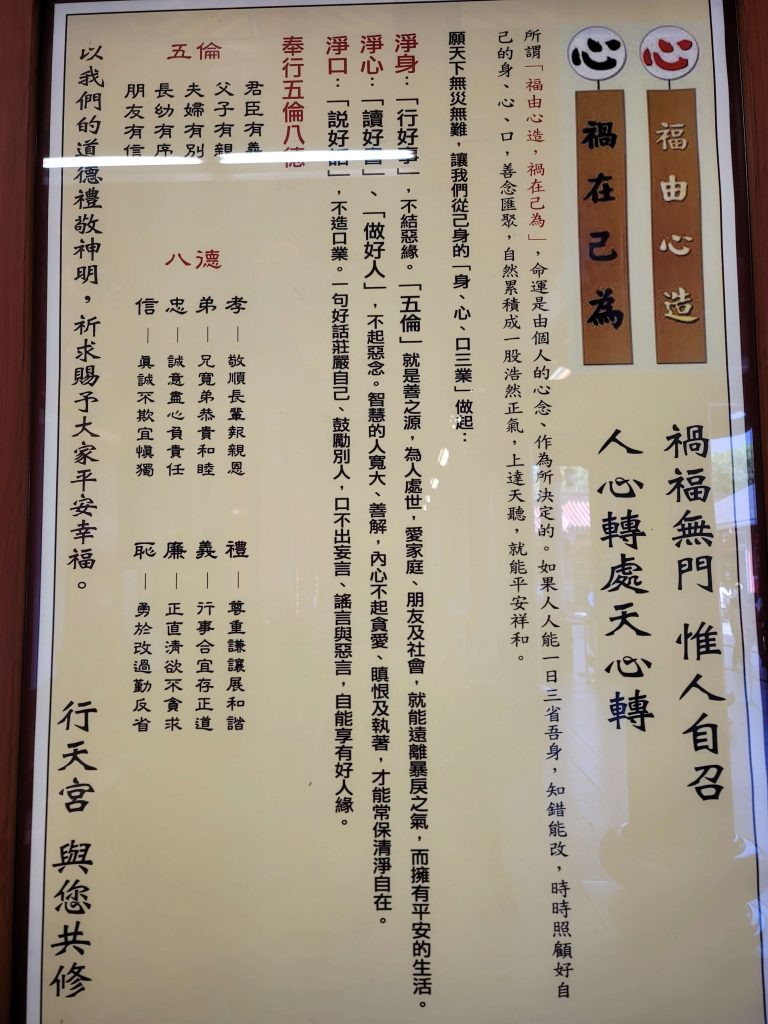 心
福由心造
心
禍在己為
禍福無門 惟人自召
人心轉處天心轉
所謂「福由心造，禍在己為」，命運是由個人的心念、作為所決定的。如果人人能一日三省吾身，知錯能改，時時照顧好自
己的身、心、口，善念匯聚，自然累積成一股浩然正氣，上達天聽，就能平安祥和。
願天下無災無難，讓我們從己身的「身、心、口三業」做起：
淨身：「行好事」，不結惡緣。「五倫」就是善之源，為人處世，愛家庭、朋友及社會，就能遠離暴戾之氣，而擁有平安的生活。
淨心：「讀好書」、「做好人」，不起惡念。智慧的人寬大、善解，內心不起貪愛、瞋恨及執著，才能常保清淨自在。
淨口：「說好話」，不造口業。一句好話莊嚴自己、鼓勵別人，口不出妄言、謠言與惡言，自能享有好人緣。
奉行五倫八德
五倫
君臣有義
父子有親
夫婦有別
長幼有序
朋友有信
八德
孝—敬順長輩報親恩
弟—兄寬弟恭貴和睦
忠—誠意盡心負責任
信—真誠不欺宜慎獨
禮—尊重謙讓展和諧
義—行事合宜存正道
廉—正直清欲不貪求
恥—勇於改過勤反省
以我們的道德禮敬神明，祈求賜予大家平安幸福。
行天宮 與您共修